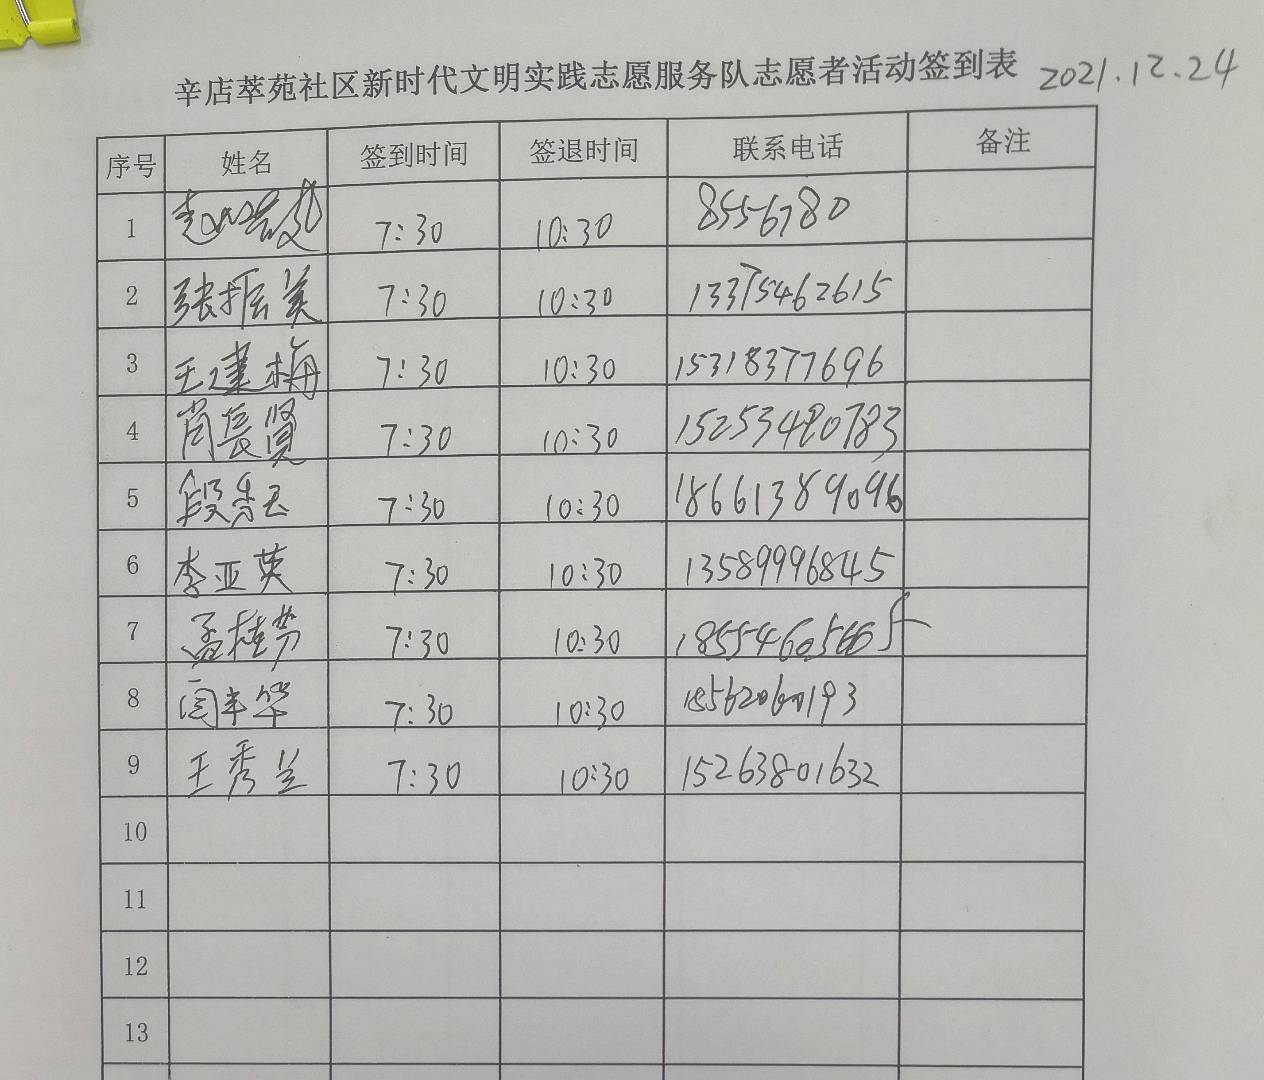 辛店萃苑社区新时代文明实践志愿服务队志愿者活动签到表 2021.12.24
序号 姓名 签到时间 签退时间 联系电话 备注
1 7:30 10:30 8556780
2 张振美 7:30 10:30 13375462615
3 王建梅 7:30 10:30 15318377696
4 肖长贤 7:30 10:30 15253480783
5 段 7:30 10:30 18661389096
6 李亚英 7:30 10:30 13589996845
7 孟桂芳 7:30 10:30
8 闫丰华 7:30 10:30 18562060193
9 王秀兰 7:30 10:30 15263801632
10
11
12
13